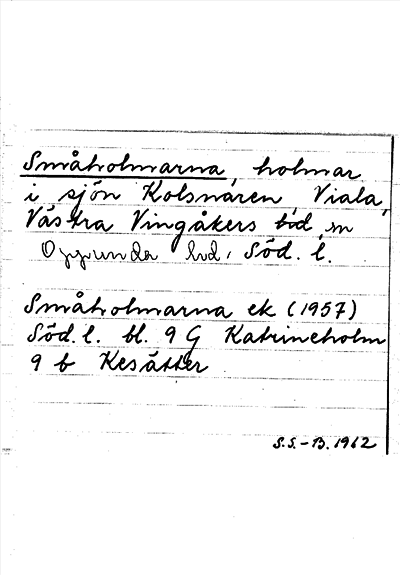 Småholmarna, holmar
i sjön Kolsnaren, Viala,
Västra Vingåkers sn
Oppunda hd, Söd. l.
Småholmarna ek (1957)
Söd. l. bl. 9 G Katrineholm
9 b Kesätter
S.S.-B. 1962